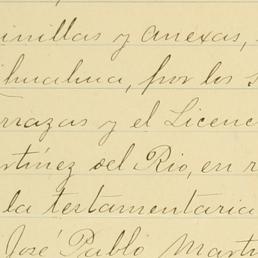 inillas y anexas,
ihuahua, por los
rrazas y el Licenc
rtínez del Rio, en r
la testamentaria
José Pablo Martí